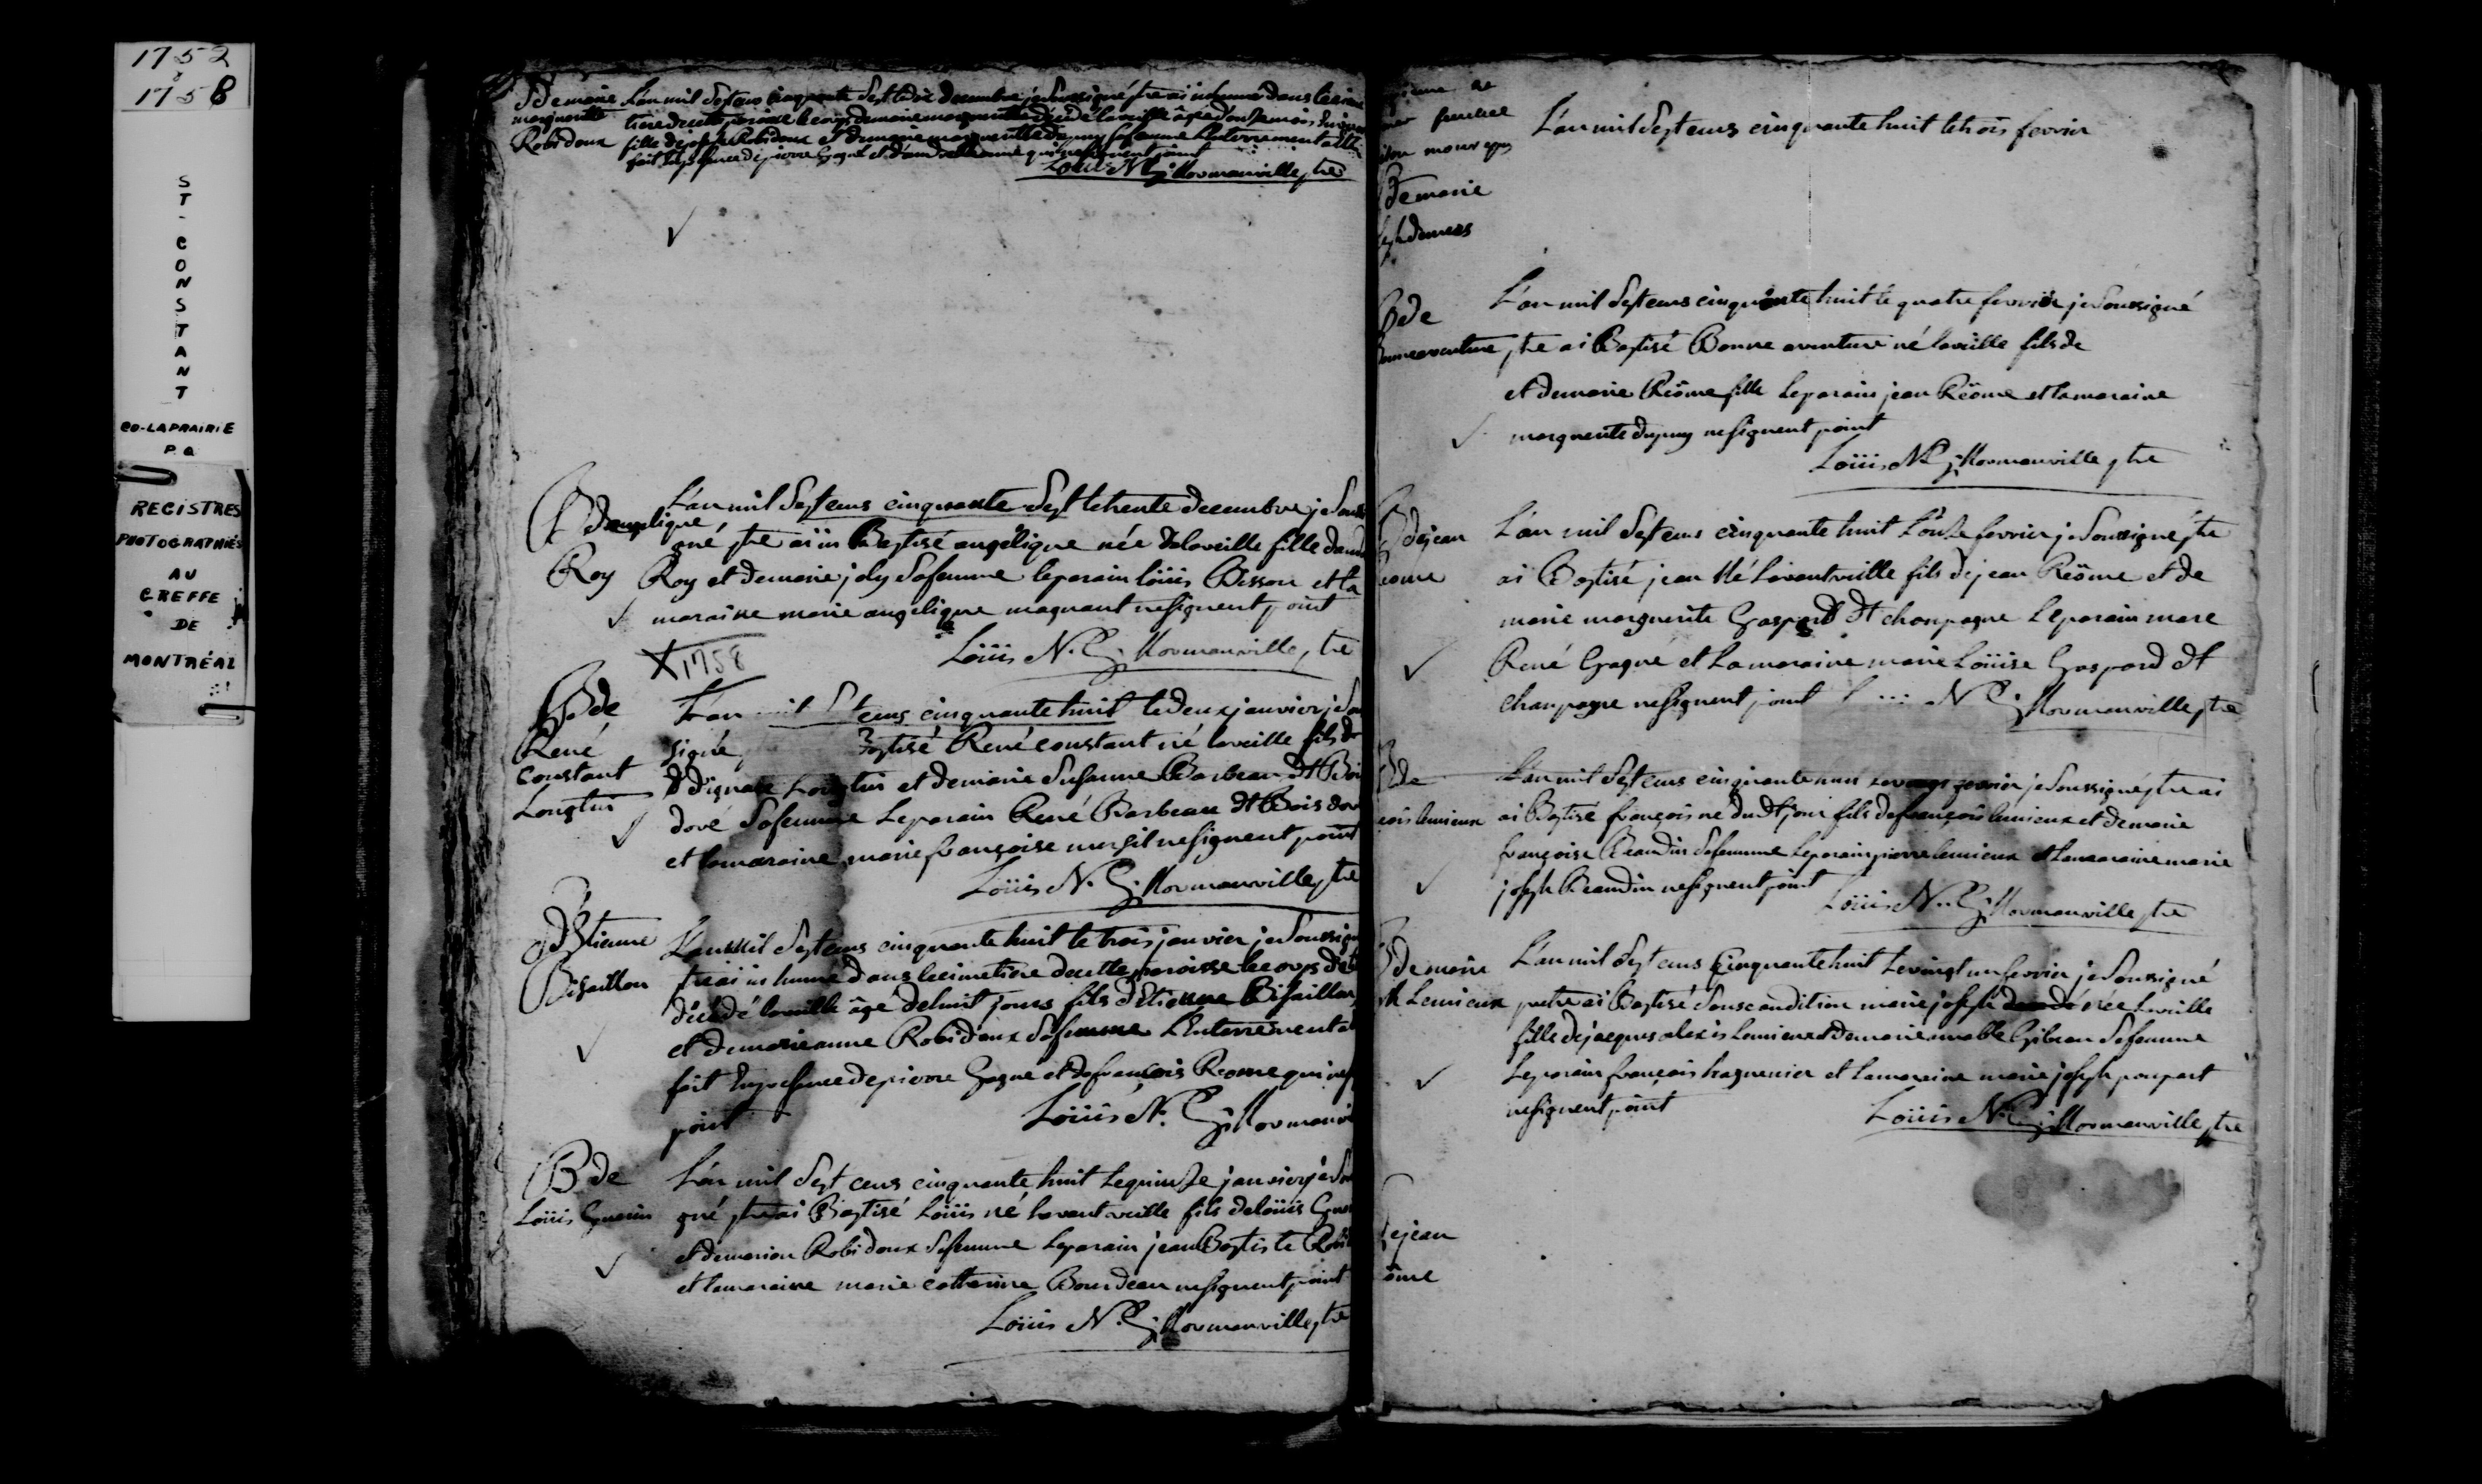 1752
à
1758
ST-CONSTANT
CO-LAPRAIRIE
P.Q
REGISTRES
PHOTOGRAPHIÉS
AU
GREFFE
DE
MONTRÉAL
S de marie
marguerite
Robidoux
L'an mil Sept cens cinquante Sept le dix decembre je Soussigné ptre ai inhumé dans le cime
tiere de cette paroisse le corps de marie marguerite décédé la veille âgée d'onze mois
fille de joseph Robidoux et de marie marguerite dupuy Sa femme L'enterrement a été
fait En presence de pierre Gagné et qui ne signent point
Loüis N. G. Normanville ptre
B d'angelique
Roy
L'an mil Sept cens cinquante Sept le trente decembre je Souss
gné ptre ai Baptisé angélique née de la veille fille d'and
Roy et de marie joly Sa femme le parain loüis Bisson et la
maraine marie angelique magnant ne signent point
Loüis N. G. Normanville ptre
X 1758
B de
René
constant
Longtin
L'an mil Sept cens cinquante huit le deux janvier je Sou
signé Baptisé René constant né la veille fils de
Longtin et de marie Susanne Barbeau dt Boi
doré Sa femme Le parain René Barbeau dt Bois doré
et la maraine marie françoise ne signent point
Loüis N. G. Normanville ptre
S d'Etienne
Bisaillon
L'an mil Sept cens cinquante huit le trois janvier je Soussigné
ptre ai inhumé dans le cimetiere de cette paroisse le corps d'et
décédé la veille âgé de huit jours fils d'Etienne Bisaillon
et de marie anne Robidoux Sa femme L'Enterrement a
fait En presence de pierre Gagné et de françois Reome qui ne sig
point
Loüis N. G. Normanvi
B de
Loüis Guerin
L'an mil Sept cens cinquante huit Le quinze janvier je Sou
gné ptre ai Baptisé Loüis né l'avant veille fils de loüis Guer
et de marion Robidoux Sa femme Le parain jean Baptiste Robi
et la maraine marie catherine Bourdeau ne signent point
Loüis N. G. Normanville ptre
de marie
L'an mil Sept cens cinquante huit le trois fevrier
B de
Bonneaventure
L'an mil Sept cens cinquante huit le quatre fevrier je Soussigné
ptre ai Baptisé Bonne aventure né la veille fils de
et de marie Rëome fille Le parain jean Rëome et la maraine
marguerite dupuy ne signent point
Loüis N. G. Normanville ptre
B de jean
Reome
L'an mil Sept cens cinquante huit L'onze fevrier je Soussigné ptre
ai Baptisé jean Né L'avant veille fils de jean Rëome et de
marie marguerite Gaspard dt champagne Le parain marc
René Gagné et La maraine marie Loüise Gaspard dt
champagne ne signent point L N. G. Normanville ptre
B de
cois lemieux
L'an mil Sept cens cinquante huit fevrier je Soussigné ptre ai
ai Baptisé françois né du dt jour fils de françois lemieux et de marie
françoise Beaudin Sa femme Le parain pierre lemieux et La maraine marie
joseph Beaudin ne signent point
Loüis N. G. Normanville ptre
B de marie
ph Lemieux
L'an mil Sept cens Cinquante huit Le vingt un fevrier je Soussigné
pretre ai Baptisé Sous condition marie joseph née La veille
fille de jacques alexis Lemieux et de marie amable Gibeau Sa femme
Le parain françois hagnenier et La maraine marie joseph poupart
ne signent point
Loüis N. G. Normanville ptre
de jean
öme